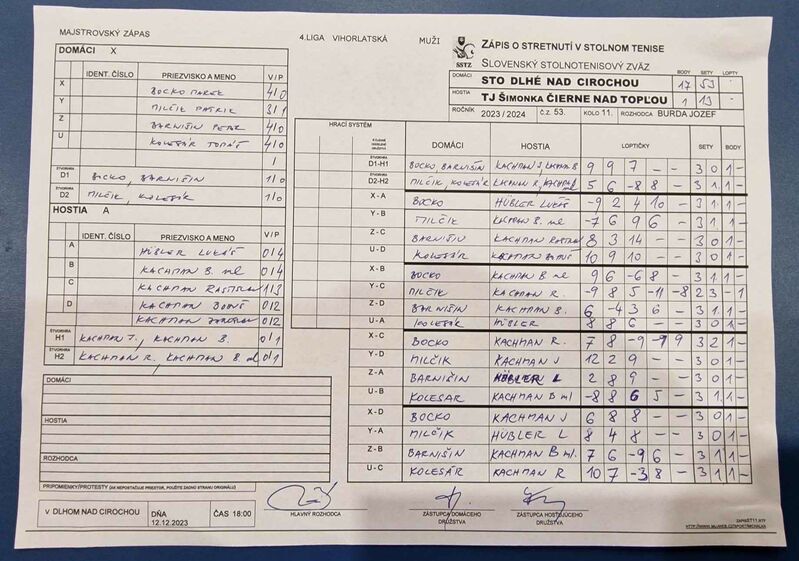 MAJSTROVSKÝ ZÁPAS
4.LIGA VIHORLATSKÁ MUŽI
ZÁPIS O STRETNUTÍ V STOLNOM TENISE
SSTZ SLOVENSKÝ STOLNOTENISOVÝ ZVÄZ
DOMÁCI BODY SETY LOPTY
STO DLHÉ NAD CIROCHOU 17 53 -
HOSTIA
TJ ŠIMONKA ČIERNE NAD TOPĽOU 1 13 -
ROČNÍK 2023 / 2024 Č.Z. 53. KOLO 11. ROZHODCA BURDA JOZEF
DOMÁCI X
IDENT. ČÍSLO PRIEZVISKO A MENO V/P
X BOCKO MAREK 4/0
Y MILČIK PATRIK 3/1
Z BARNIŠIN PETER 4/0
U KOLESÁR TOMÁŠ 4/0
/
ŠTVORHRA
D1 BOCKO, BARNIŠIN 1/0
ŠTVORHRA
D2 MILČIK, KOLESÁR 1/0
HOSTIA A
IDENT. ČÍSLO PRIEZVISKO A MENO V/P
A HÜBLER LUKÁŠ 0/4
B KACHMAN B. ml 0/4
C KACHMAN RASTISLAV 1/3
D KACHMAN 0/2
KACHMAN 0/2
ŠTVORHRA
H1 KACHMAN J., KACHMAN B. 0/1
ŠTVORHRA
H2 KACHMAN R., KACHMAN B. ml 0/1
DOMÁCI
HOSTIA
ROZHODCA
PRIPOMIENKY/PROTESTY (AK NEPOSTAČUJE PRIESTOR, POUŽITE ZADNÚ STRANU ORIGINÁLU)
HRACÍ SYSTÉM DOMÁCI HOSTIA LOPTIČKY SETY BODY
ŠTVORHRA
D1-H1 BOCKO, BARNIŠIN KACHMAN J, KACHMAN B 9 9 7 - - 3 0 1 -
ŠTVORHRA
D2-H2 MILČIK, KOLESÁR KACHMAN R, KACHMAN 5 6 -8 8 - 3 1 1 -
X - A BOCKO HÜBLER LUKÁŠ -9 2 4 10 - 3 1 1 -
Y - B MILČIK KACHMAN B. ml -7 6 9 6 - 3 1 1 -
Z - C BARNIŠIN KACHMAN RASTISLAV 8 3 14 - - 3 0 1 -
U - D KOLESÁR KACHMAN 10 9 10 - - 3 0 1 -
X - B BOCKO KACHMAN B ml 9 6 -6 8 - 3 1 1 -
Y - C MILČIK KACHMAN R. -9 8 5 -11 -8 2 3 - 1
Z - D BARNIŠIN KACHMAN B. 6 -4 3 6 - 3 1 1 -
U - A KOLESÁR HÜBLER 8 8 6 - - 3 0 1 -
X - C BOCKO KACHMAN R. 7 8 -9 9 3 2 1 -
Y - D MILČIK KACHMAN J 12 2 9 - - 3 0 1 -
Z - A BARNIŠIN HÜBLER L 2 8 9 - - 3 0 1 -
U - B KOLESAR KACHMAN B ml -8 8 6 5 - 3 1 1 -
X - D BOCKO KACHMAN J 6 8 8 - - 3 0 1 -
Y - A MILČIK HÜBLER L 8 4 8 - - 3 0 1 -
Z - B BARNIŠIN KACHMAN B ml 7 6 -9 6 - 3 1 1 -
U - C KOLESÁR KACHMAN R 10 7 -3 8 - 3 1 1 -
V DLHOM NAD CIROCHOU DŇA 12.12.2023 ČAS 18:00
HLAVNÝ ROZHODCA
ZÁSTUPCA DOMÁCEHO DRUŽSTVA
ZÁSTUPCA HOSŤUJÚCEHO DRUŽSTVA